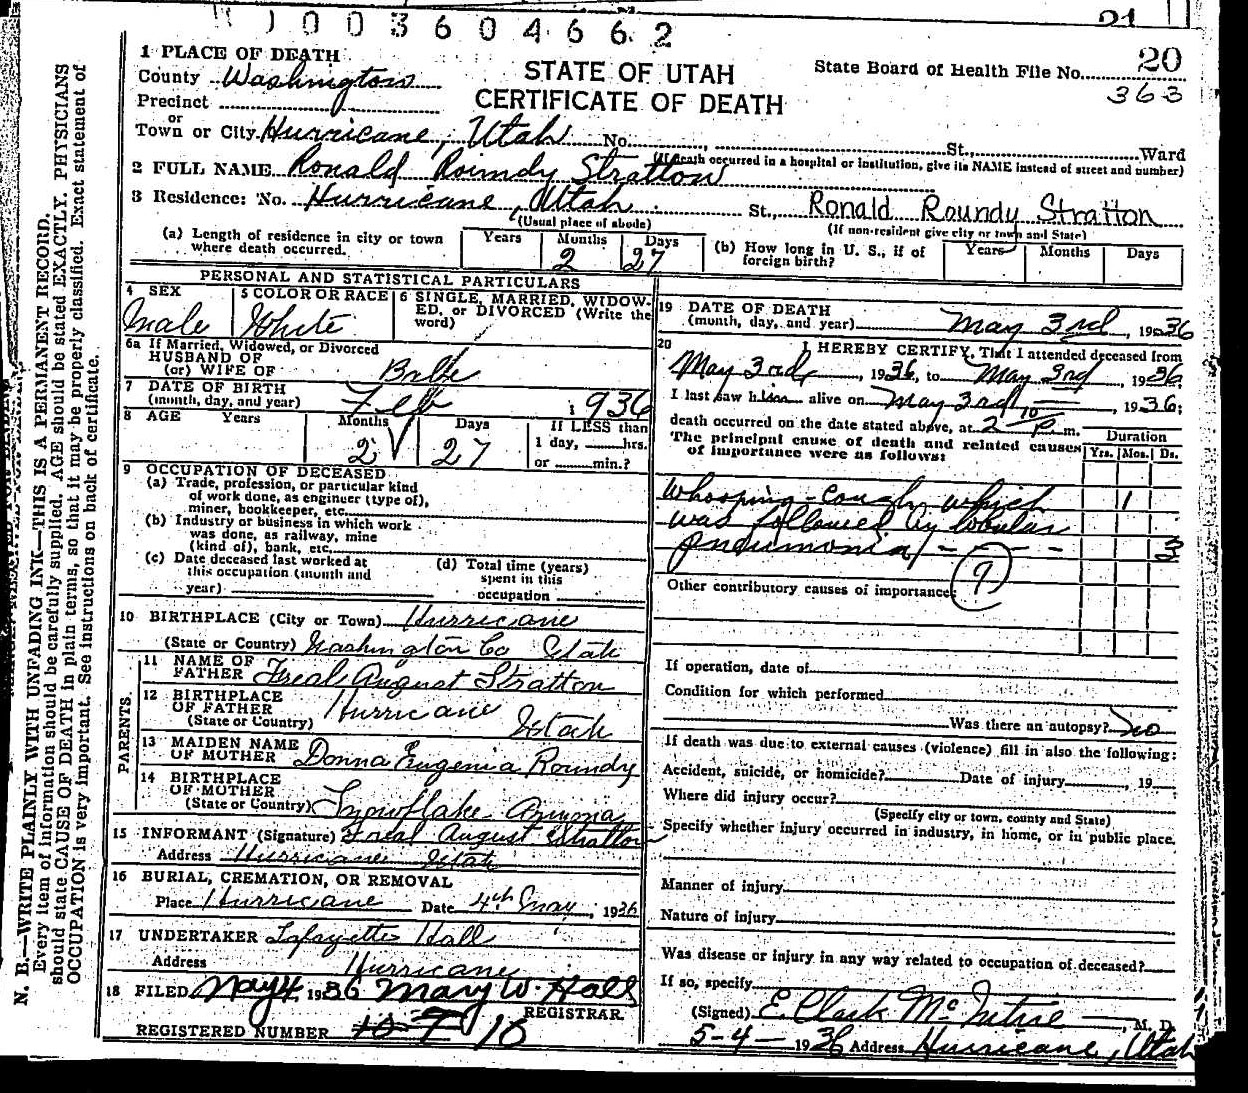 1003604662
21
1 PLACE OF DEATH
County Washington
Precinct
or
Town or City Hurricane, Utah No. St., Ward
STATE OF UTAH
CERTIFICATE OF DEATH
State Board of Health File No. 20
363
(If death occurred in a hospital or institution, give its NAME instead of street and number)
2 FULL NAME Ronald Roundy Stratton
3 Residence: No. Hurricane, Utah St., Ronald Roundy Stratton
(Usual place of abode) (If non-resident give city or town and State)
(a) Length of residence in city or town where death occurred. Years Months 2 Days 27
(b) How long in U. S., if of foreign birth? Years Months Days
PERSONAL AND STATISTICAL PARTICULARS
4 SEX Male
5 COLOR OR RACE White
6 SINGLE, MARRIED, WIDOWED, or DIVORCED (Write the word)
6a If Married, Widowed, or Divorced
HUSBAND OF
(or) WIFE OF Babe
7 DATE OF BIRTH
(month, day, and year) Feb 1936
8 AGE Years Months 2 Days 27 If LESS than
1 day, hrs.
or min.?
9 OCCUPATION OF DECEASED
(a) Trade, profession, or particular kind
of work done, as engineer (type of),
miner, bookkeeper, etc.
(b) Industry or business in which work
was done, as railway, mine
(kind of), bank, etc.
(c) Date deceased last worked at
this occupation (month and
year)
(d) Total time (years)
spent in this
occupation
10 BIRTHPLACE (City or Town) Hurricane
(State or Country) Washington Co Utah
PARENTS.
11 NAME OF
FATHER Freal August Stratton
12 BIRTHPLACE
OF FATHER Hurricane
(State or Country) Utah
13 MAIDEN NAME
OF MOTHER Donna Eugenia Roundy
14 BIRTHPLACE
OF MOTHER
(State or Country) Snowflake Arizona
15 INFORMANT (Signature) Freal August Stratton
Address Hurricane Utah
16 BURIAL, CREMATION, OR REMOVAL
Place Hurricane Date 4th May, 1936
17 UNDERTAKER Lafayette Hall
Address Hurricane
18 FILED May 4 1936 Mary W. Hall
REGISTRAR.
REGISTERED NUMBER 10
19 DATE OF DEATH
(month, day, and year) May 3rd, 1936
20 I HEREBY CERTIFY, That I attended deceased from
May 3rd, 1936, to May 3rd, 1936.
I last saw him alive on May 3rd, 1936;
death occurred on the date stated above, at 2 10 P. m.
The principal cause of death and related causes
of importance were as follows:
Duration
Yrs. Mos. Ds.
Whooping-cough which 1
was followed by lobular
pneumonia 3
9
Other contributory causes of importance:
If operation, date of
Condition for which performed
Was there an autopsy? No
If death was due to external causes (violence) fill in also the following:
Accident, suicide, or homicide? Date of injury, 19
Where did injury occur?
(Specify city or town, county and State)
Specify whether injury occurred in industry, in home, or in public place.
Manner of injury
Nature of injury
Was disease or injury in any way related to occupation of deceased?
If so, specify
(Signed) E. Clark McIntire, M. D.
5-4-1936 Address Hurricane, Utah
N. B.—WRITE PLAINLY WITH UNFADING INK—THIS IS A PERMANENT RECORD.
Every item of information should be carefully supplied. AGE should be stated EXACTLY. PHYSICIANS
should state CAUSE OF DEATH in plain terms, so that it may be properly classified. Exact statement of
OCCUPATION is very important. See instructions on back of certificate.